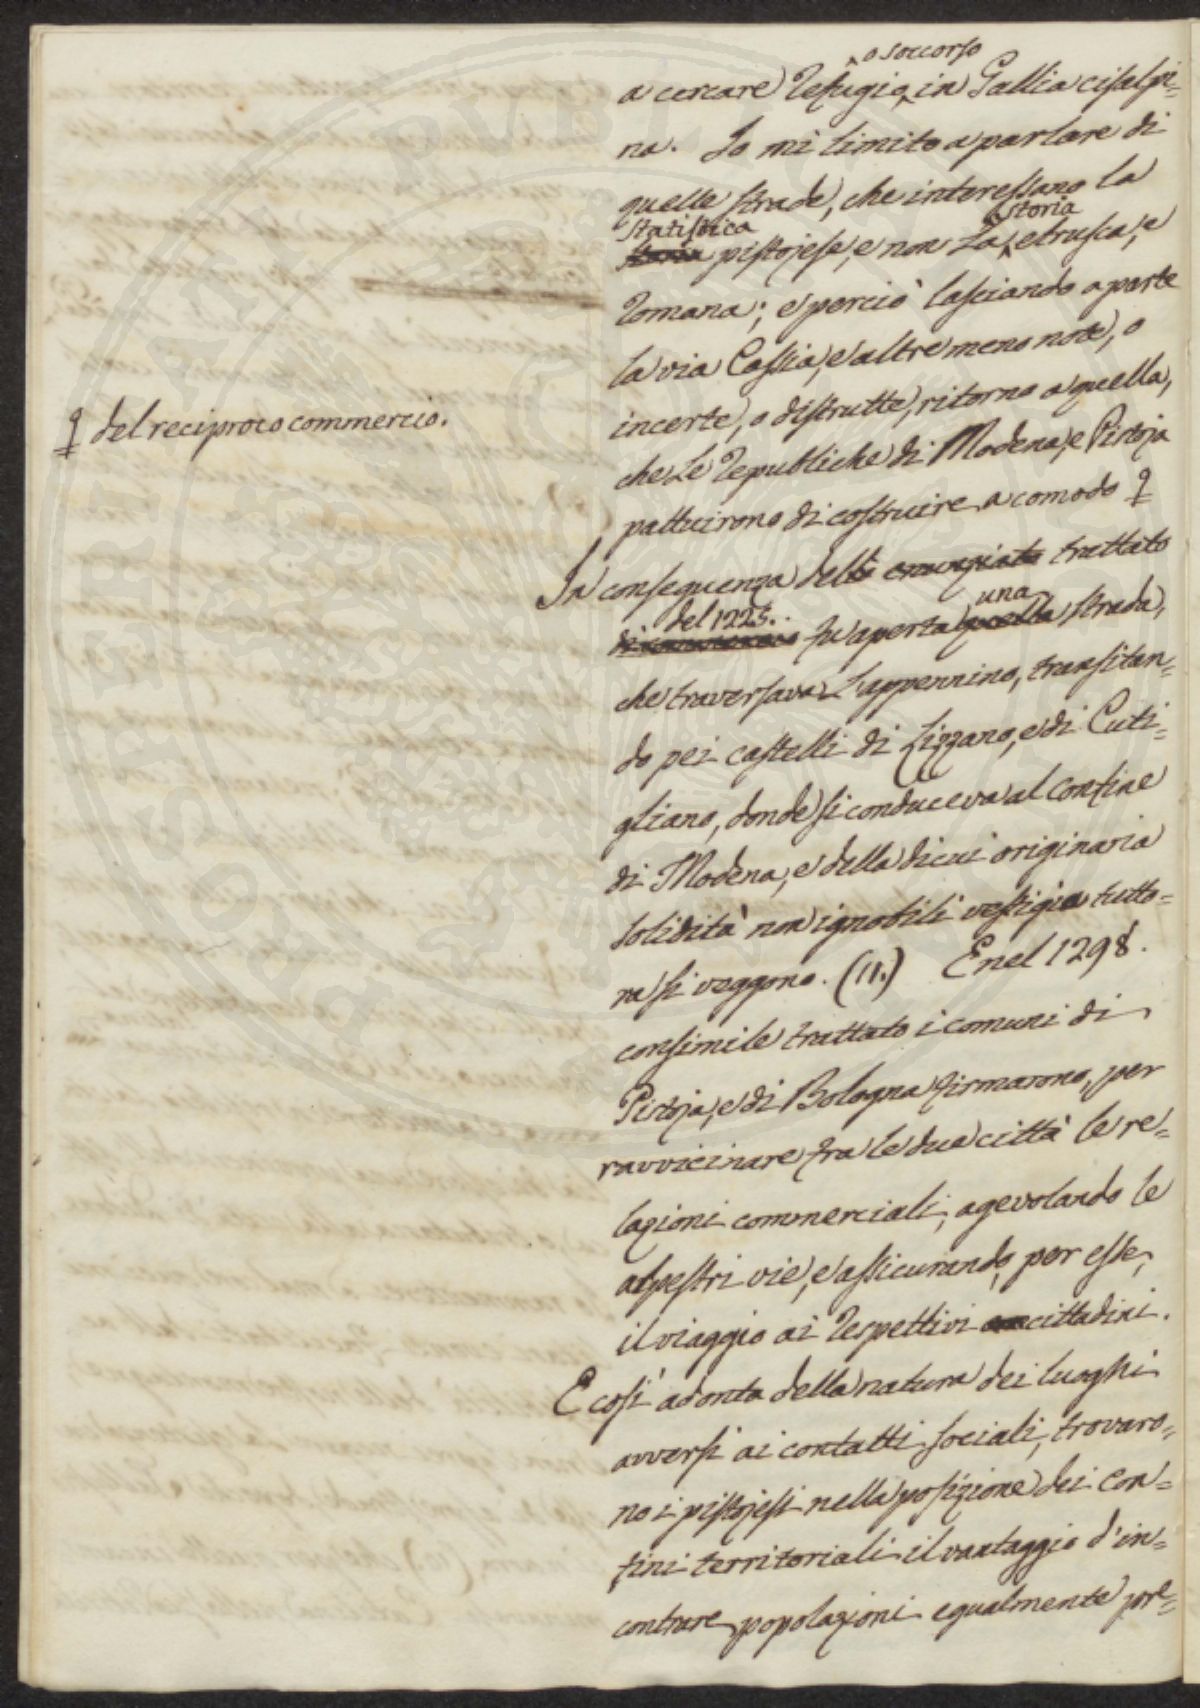 o soccorso
a cercare refugio in Gallia cisalpi=
na. Io mi limito a parlare di
quelle strade, che interessano la
statistica
storia pistojese, e non la etrusca, e
storia
romana; e perciò lasciando a parte
la via Cassia, e altre meno note, o
incerte, o distrutte, ritorno a quella,
che le republiche di Modena, e Pistoja
pattuirono di costruire a comodo ♀
♀ del reciproco commercio.
In conseguenza del trattato
del 1225. fu aperta quella strada,
una
che traversava l'appennino, transitan=
do pei castelli di Lizzano, e di Cuti=
gliano, donde si conduceva al confine
di Modena, e della di cui originaria
solidità non ignobili vestigia tutto=
ra si veggono. (11.) E nel 1298.
consimile trattato i comuni di
Pistoja, e di Bologna firmarono, per
ravvicinare fra le due città le re=
lazioni commerciali, agevolando le
alpestri vie, e assicurando, per esse,
il viaggio ai respettivi cittadini.
E così ad onta della natura dei luoghi
avversi ai contatti sociali, trovaro=
no i pistojesi nella posizione dei con=
fini territoriali il vantaggio d'in=
contrare popolazioni egualmente pre=